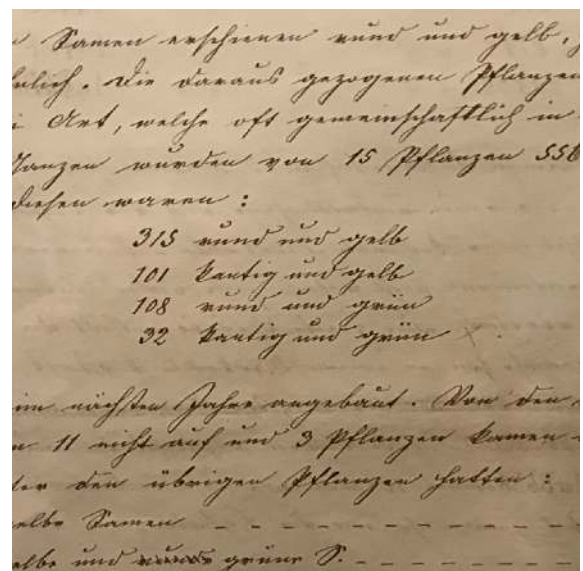 Samen erschienen rund und gelb,
hnlich. Die daraus gezogenen Pflanzen
i Art, welche oft gemeinschaftlich in
Ganzen wurden von 15 Pflanzen 556
diesen waren :
315 rund und gelb
101 kantig und gelb
108 rund und grün
32 kantig und grün
im nächsten Jahre angebaut. Von den
n 11 nicht auf und 3 Pflanzen kamen
ter den übrigen Pflanzen hatten :
elbe Samen - - - - - - - - - -
elbe und grüne S. - - - - - - -